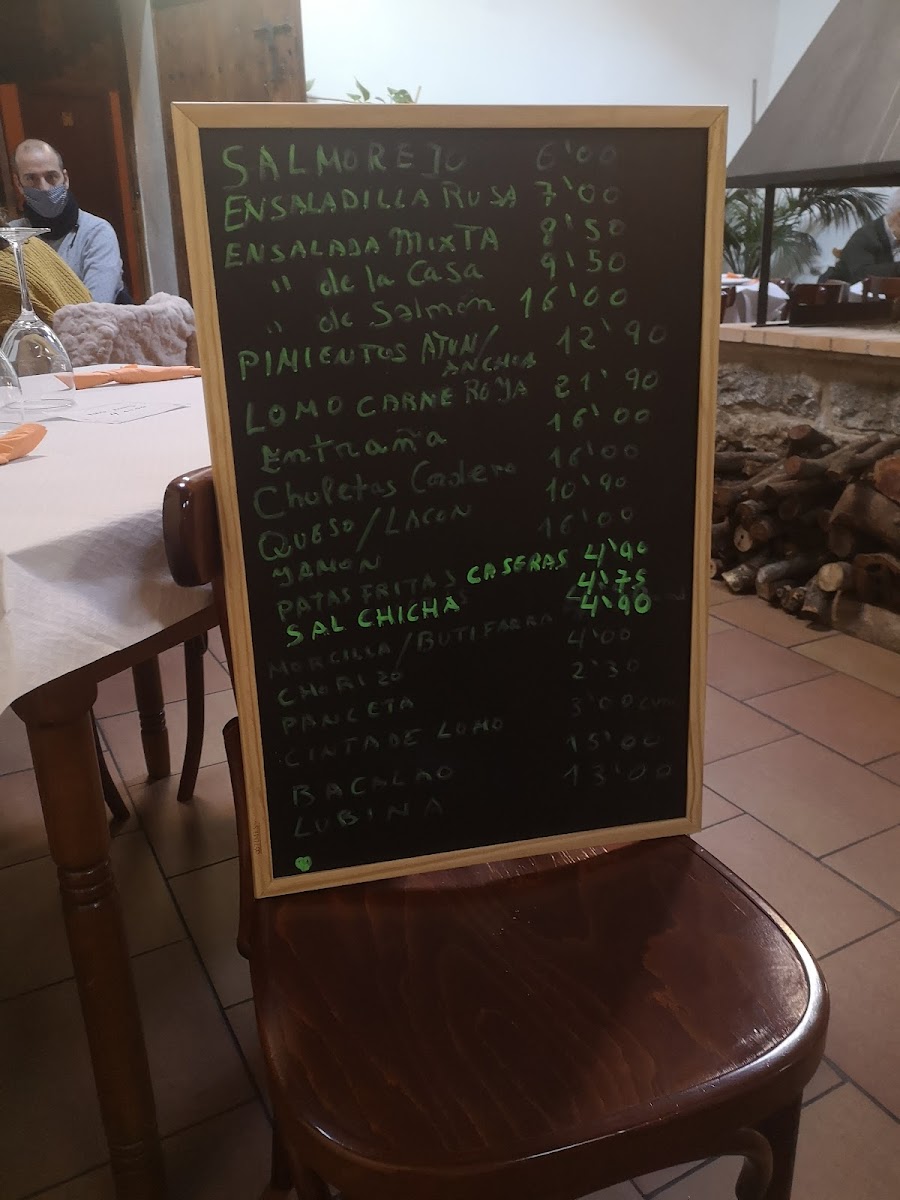 SALMOREJO 6'00
ENSALADILLA RUSA 7'00
ENSALADA MIXTA 8'50
" de la Casa 9'50
" de Salmón 16'00
PIMIENTOS ATUN/ 12'90
ANCHOA
LOMO CARNE ROYA 21'90
Entraña 16'00
Chuletas Cordero 16'00
QUESO/LACON 10'90
YAMON 16'00
PATAS FRITAS CASERAS 4'90
SALCHICHA 4'75
MORCILLA/BUTIFARRA 4'90
CHORIZO 4'00
PANCETA 2'30
CINTA DE LOMO 3'00
BACALAO 15'00
LUBINA 13'00